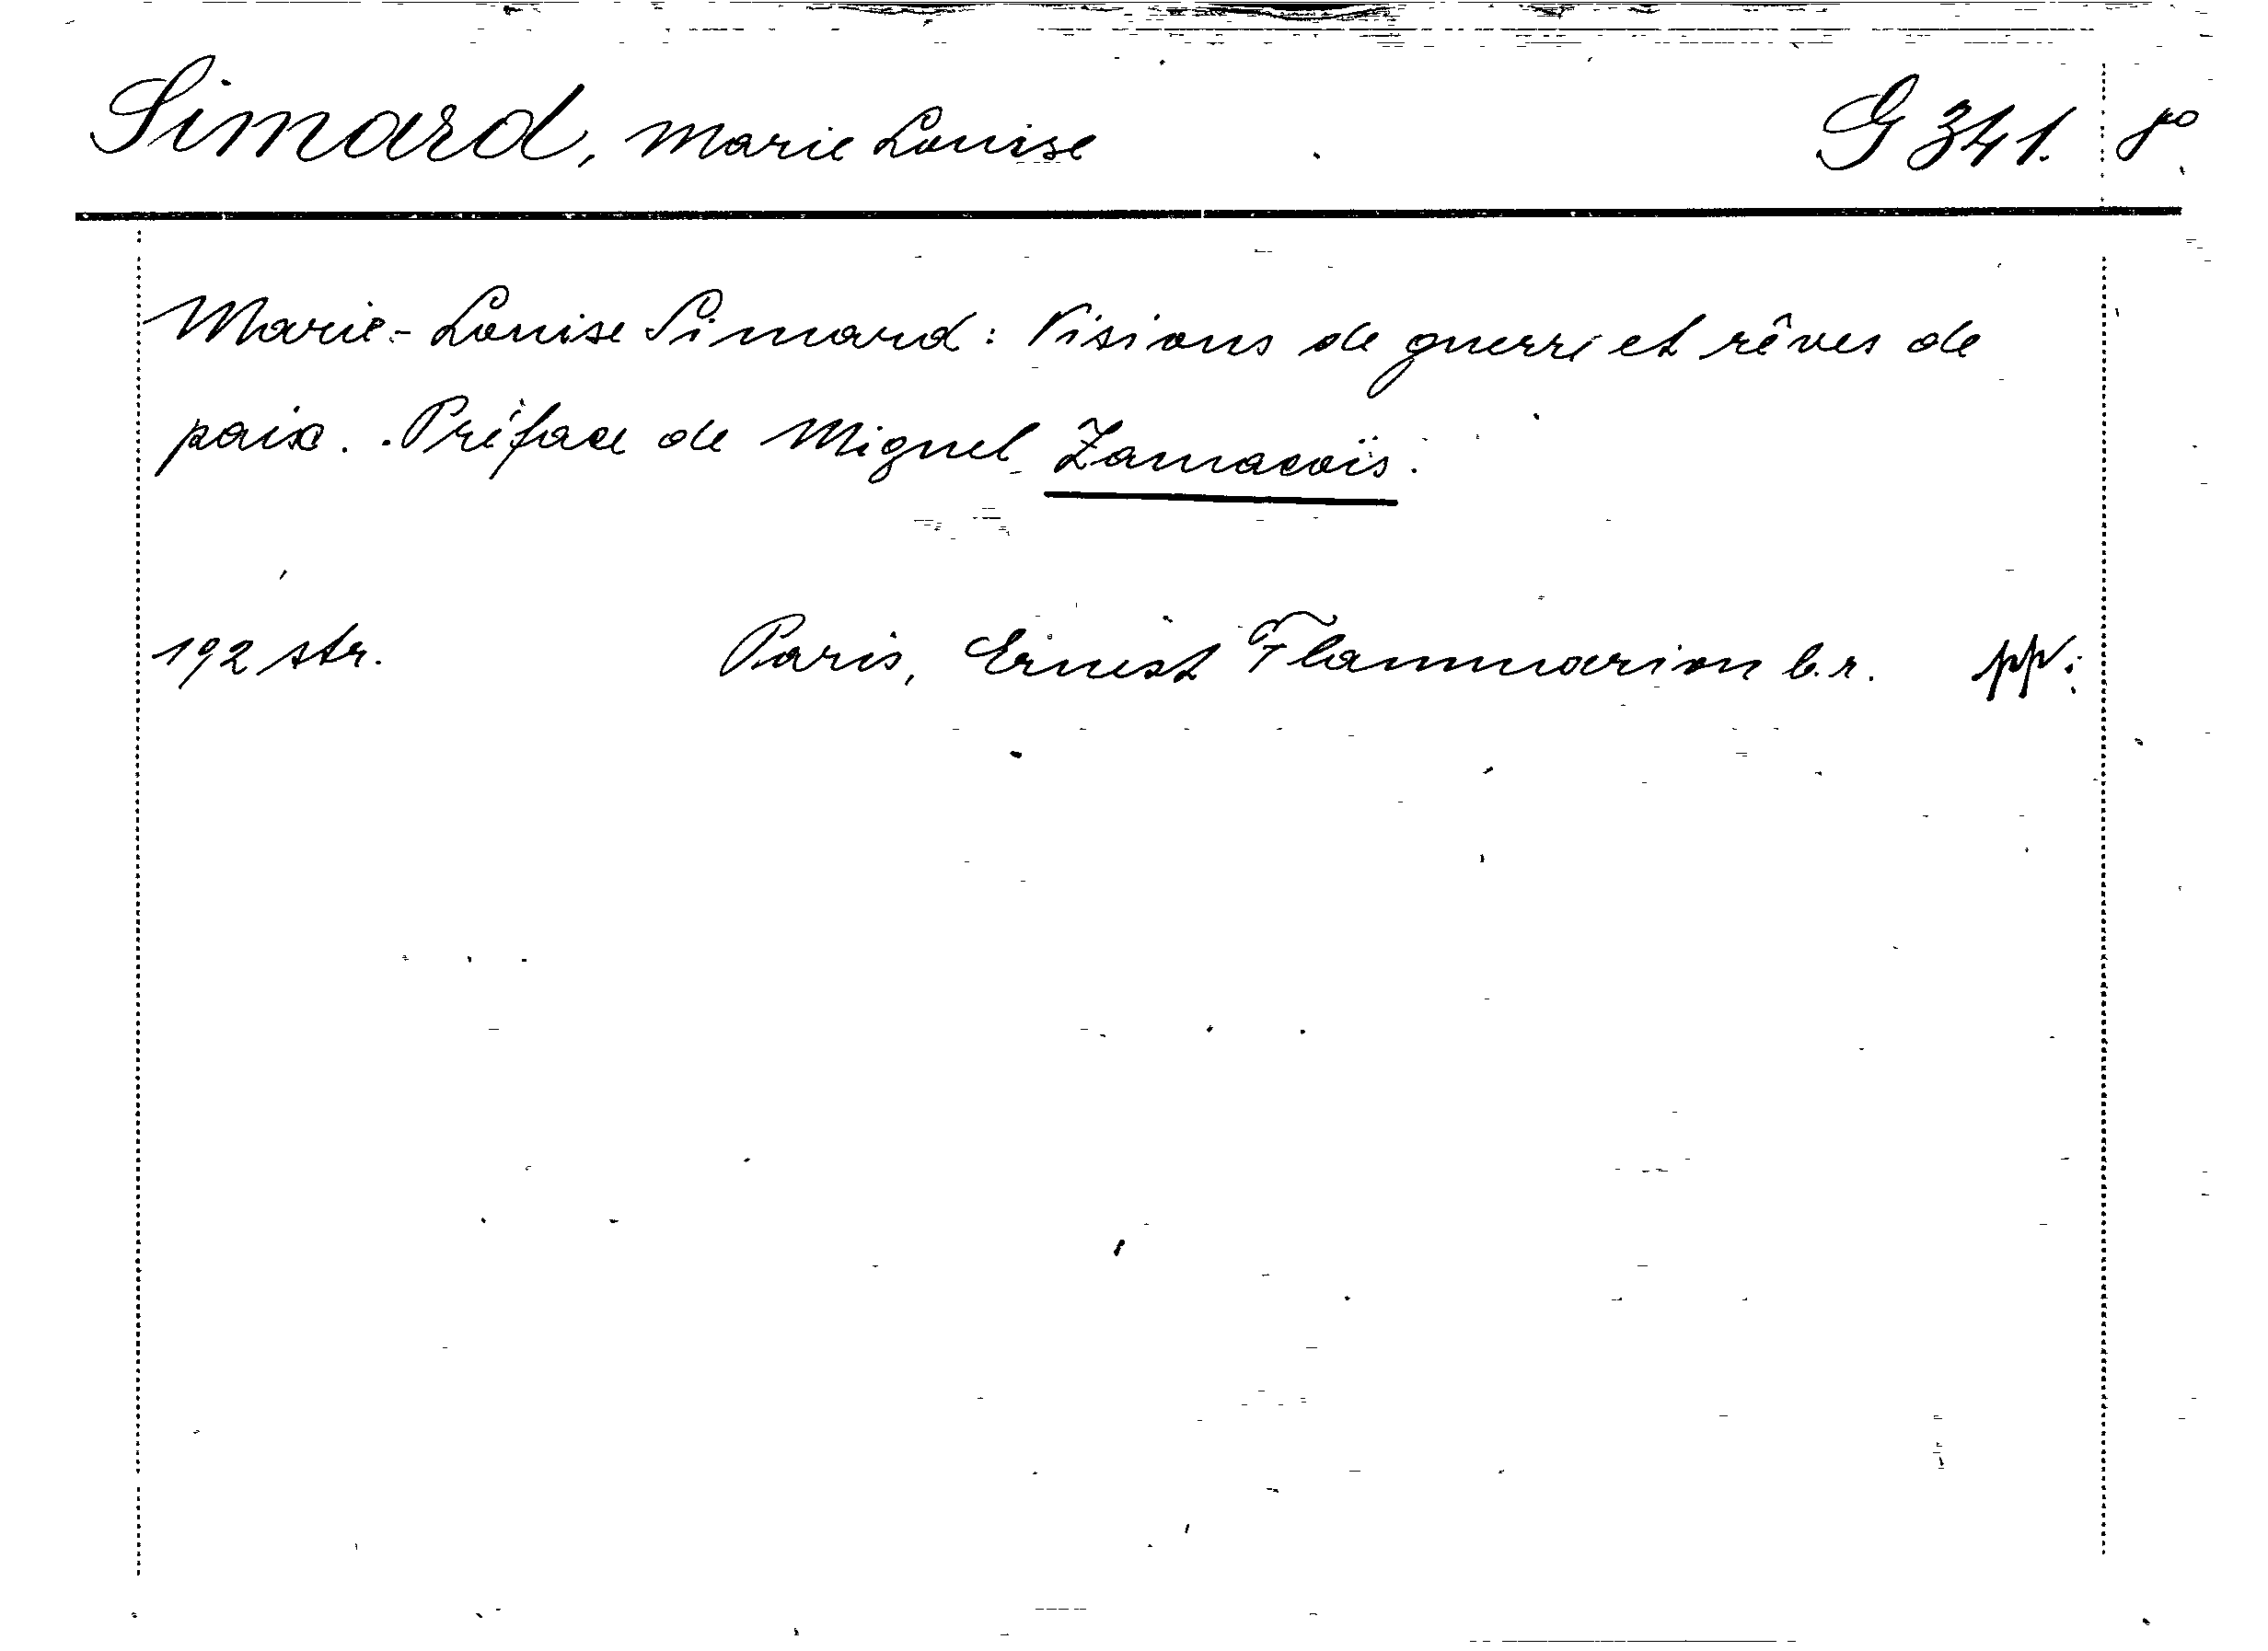 Simard, Marie Louise G 341. 8°
Marie-Louise Simard: Visions de guerre et rêves de
paix. Préface de Miguel Zamacoïs.
192 str. Paris, Ernest Flammarion b.r. pp.